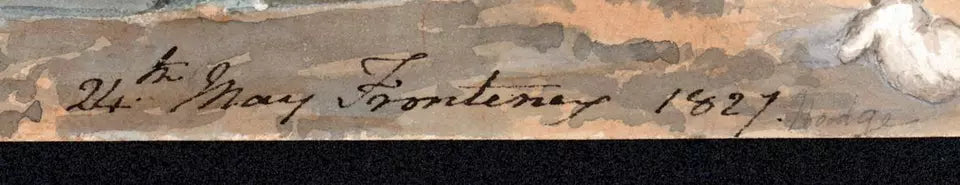 24.th May Frontenay 1827.